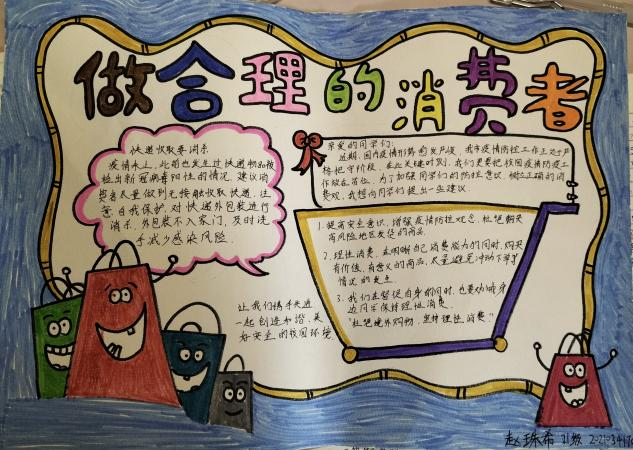 做合理的消费者
快递收取要消杀
疫情以上,此前也发生过快递物品被
检出新冠病毒阳性的情况,建议消
费者尽量做到无接触收取快递,注
意自我保护,对快递外包装进行
消杀,外包装不入家门,及时洗
手减少感染风险.
亲爱的同学们:
近期,国内疫情形势愈发严峻,我市疫情防控工作正处于严
格把守阶段,在此关键时刻,我们更要把校园疫情防疫工
作放在首位,为了加强同学们的防控意识,树立正确的消
费观,我想向同学们提出一些建议.
1.提高安全意识,增强疫情防控观念,杜绝购买
高风险地区发货的商品.
2.理性消费,在明晰自己消费能力的同时,购买
有价值、有意义的商品,尽量避免冲动下单等
情况的发生
3.我们在督促自身的同时,也要劝诫身
边同学保持理性消费.
"杜绝境外购物,坚持理性消费."
让我们携手共进
一起创造和谐、美
好安全的校园环境
赵珠希 21数